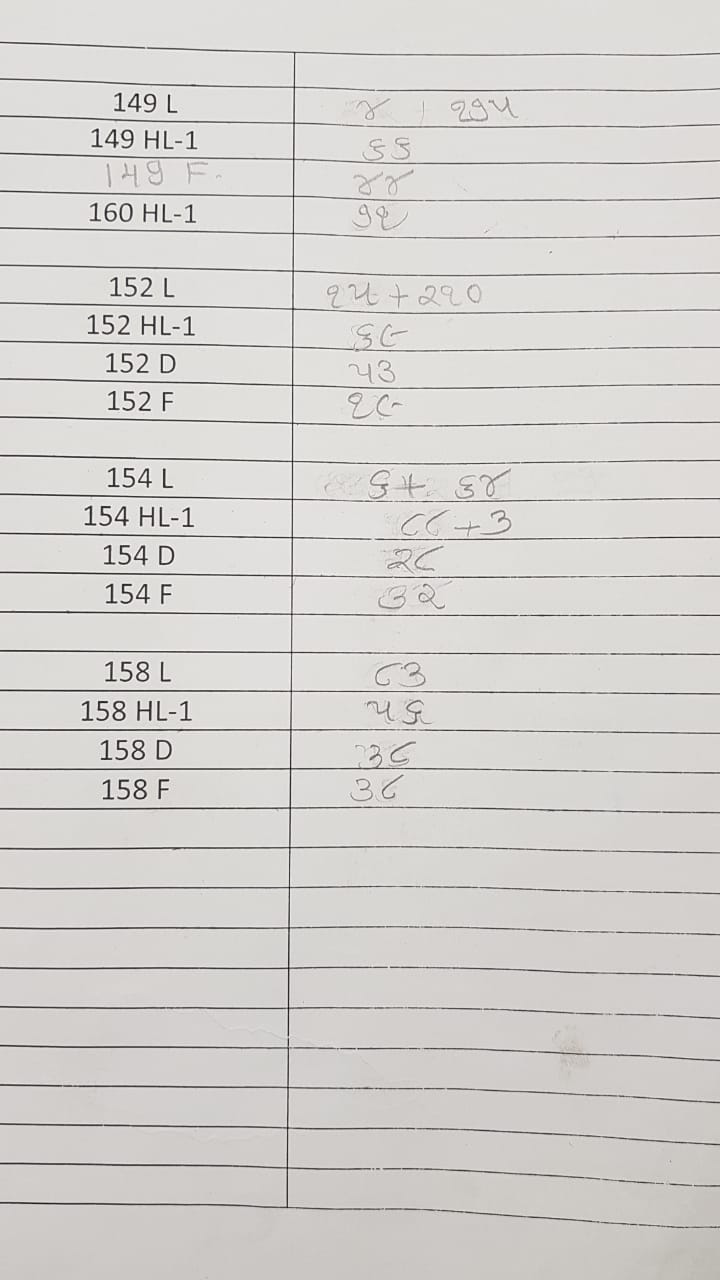 149 L ૪ + ૨૧૫
149 HL-1 ૬૬
149 F. ૪૪
160 HL-1 ૧૨
152 L ૨૫ + ૨૨૦
152 HL-1 ૬૯
152 D ૫૩
152 F ૨૯
154 L ૬ + ૬૪
154 HL-1 ૮૮ + ૩
154 D ૨૮
154 F ૩૨
158 L ૮૩
158 HL-1 ૫૬
158 D ૩૮
158 F ૩૮